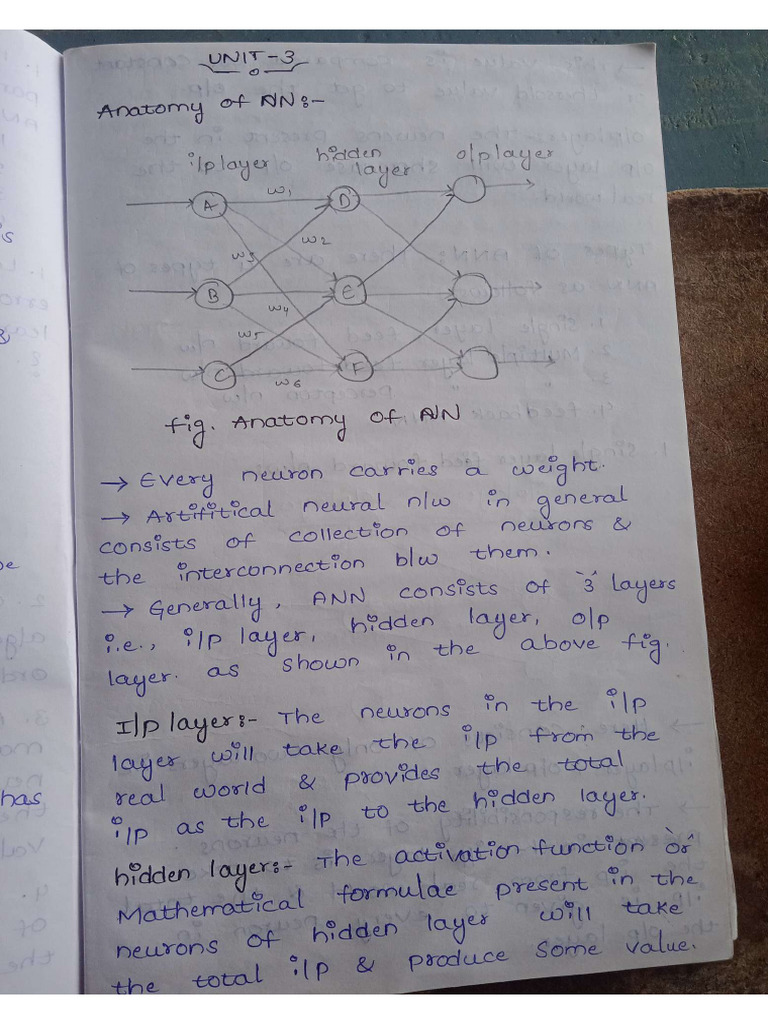 UNIT-3
Anatomy of NN:-
i/p layer hidden layer o/p layer
A w1 D
w2
w3
B E
w4
w5
C w6 F
fig. Anatomy of NN
→ Every neuron carries a weight.
→ Artifitical neural n/w in general
consists of collection of neurons &
the interconnection b/w them.
→ Generally, ANN consists of '3' layers
i.e., i/p layer, hidden layer, o/p
layer. as shown in the above fig.
I/p layer:- The neurons in the i/p
layer will take the i/p from the
real world & provides the total
i/p as the i/p to the hidden layer.
hidden layer:- The activation function 'or'
Mathematical formulae present in the
neurons of hidden layer will take
the total i/p & produce some value.
is
has